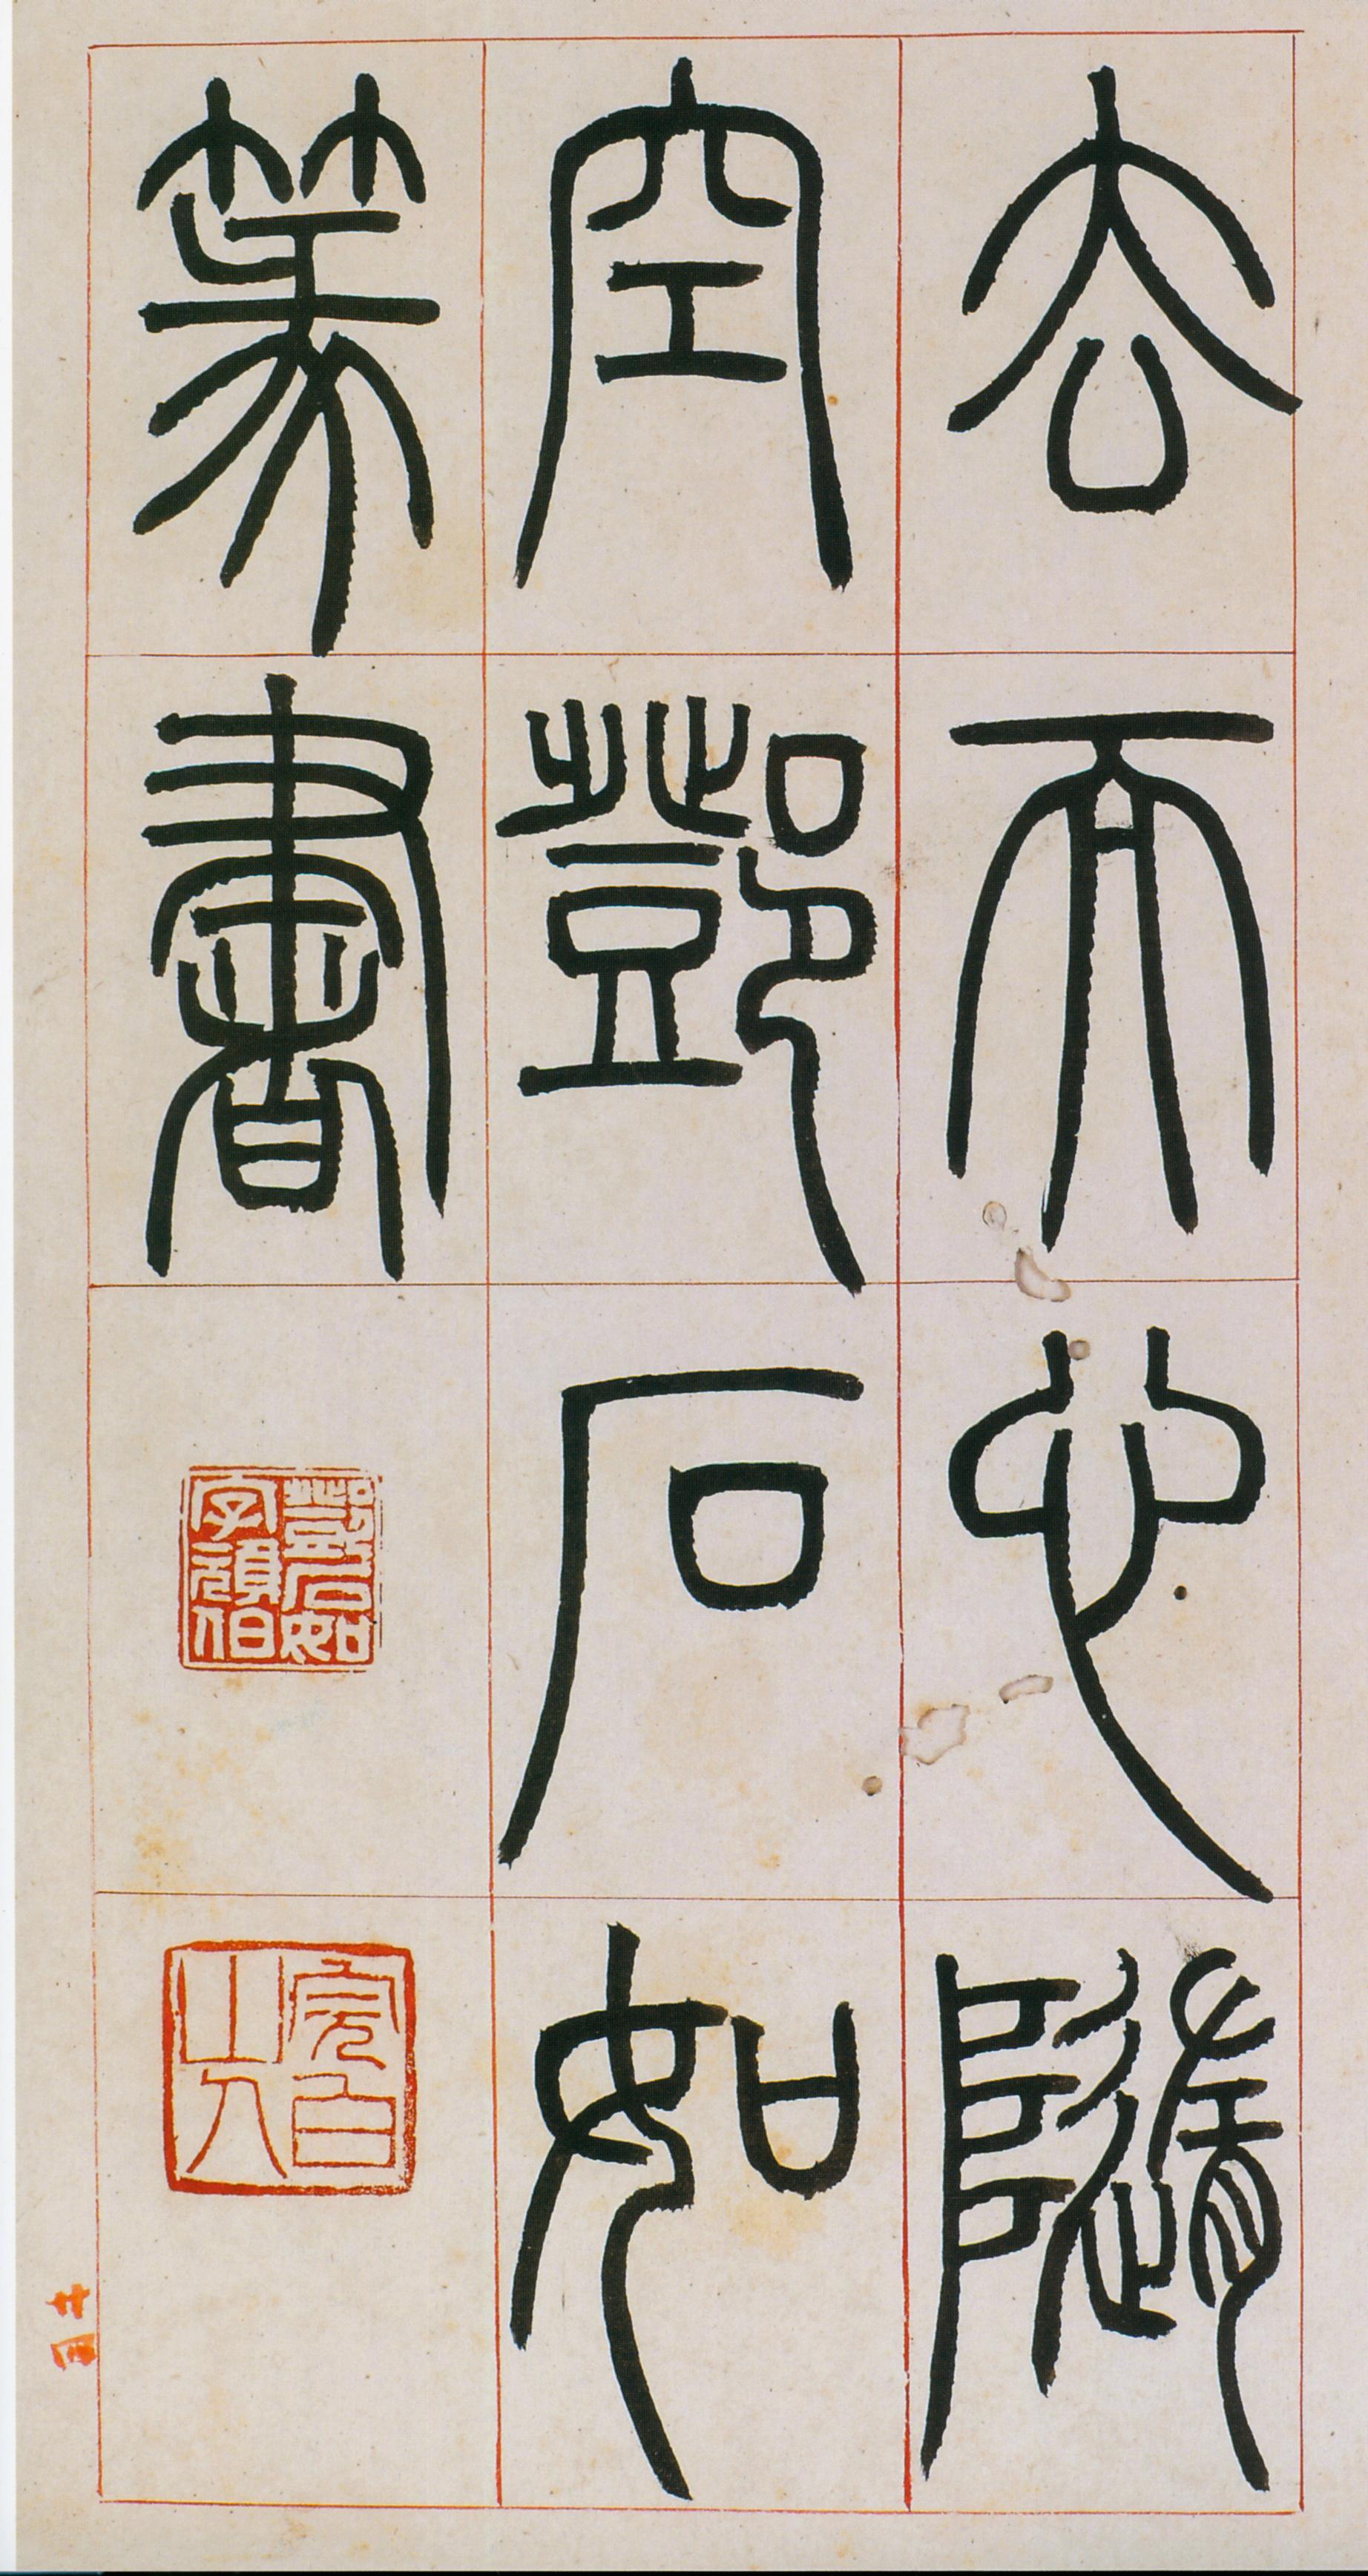 去而心隨
空鄧石如
篆書
鄧石如
字頑伯
完白
山人